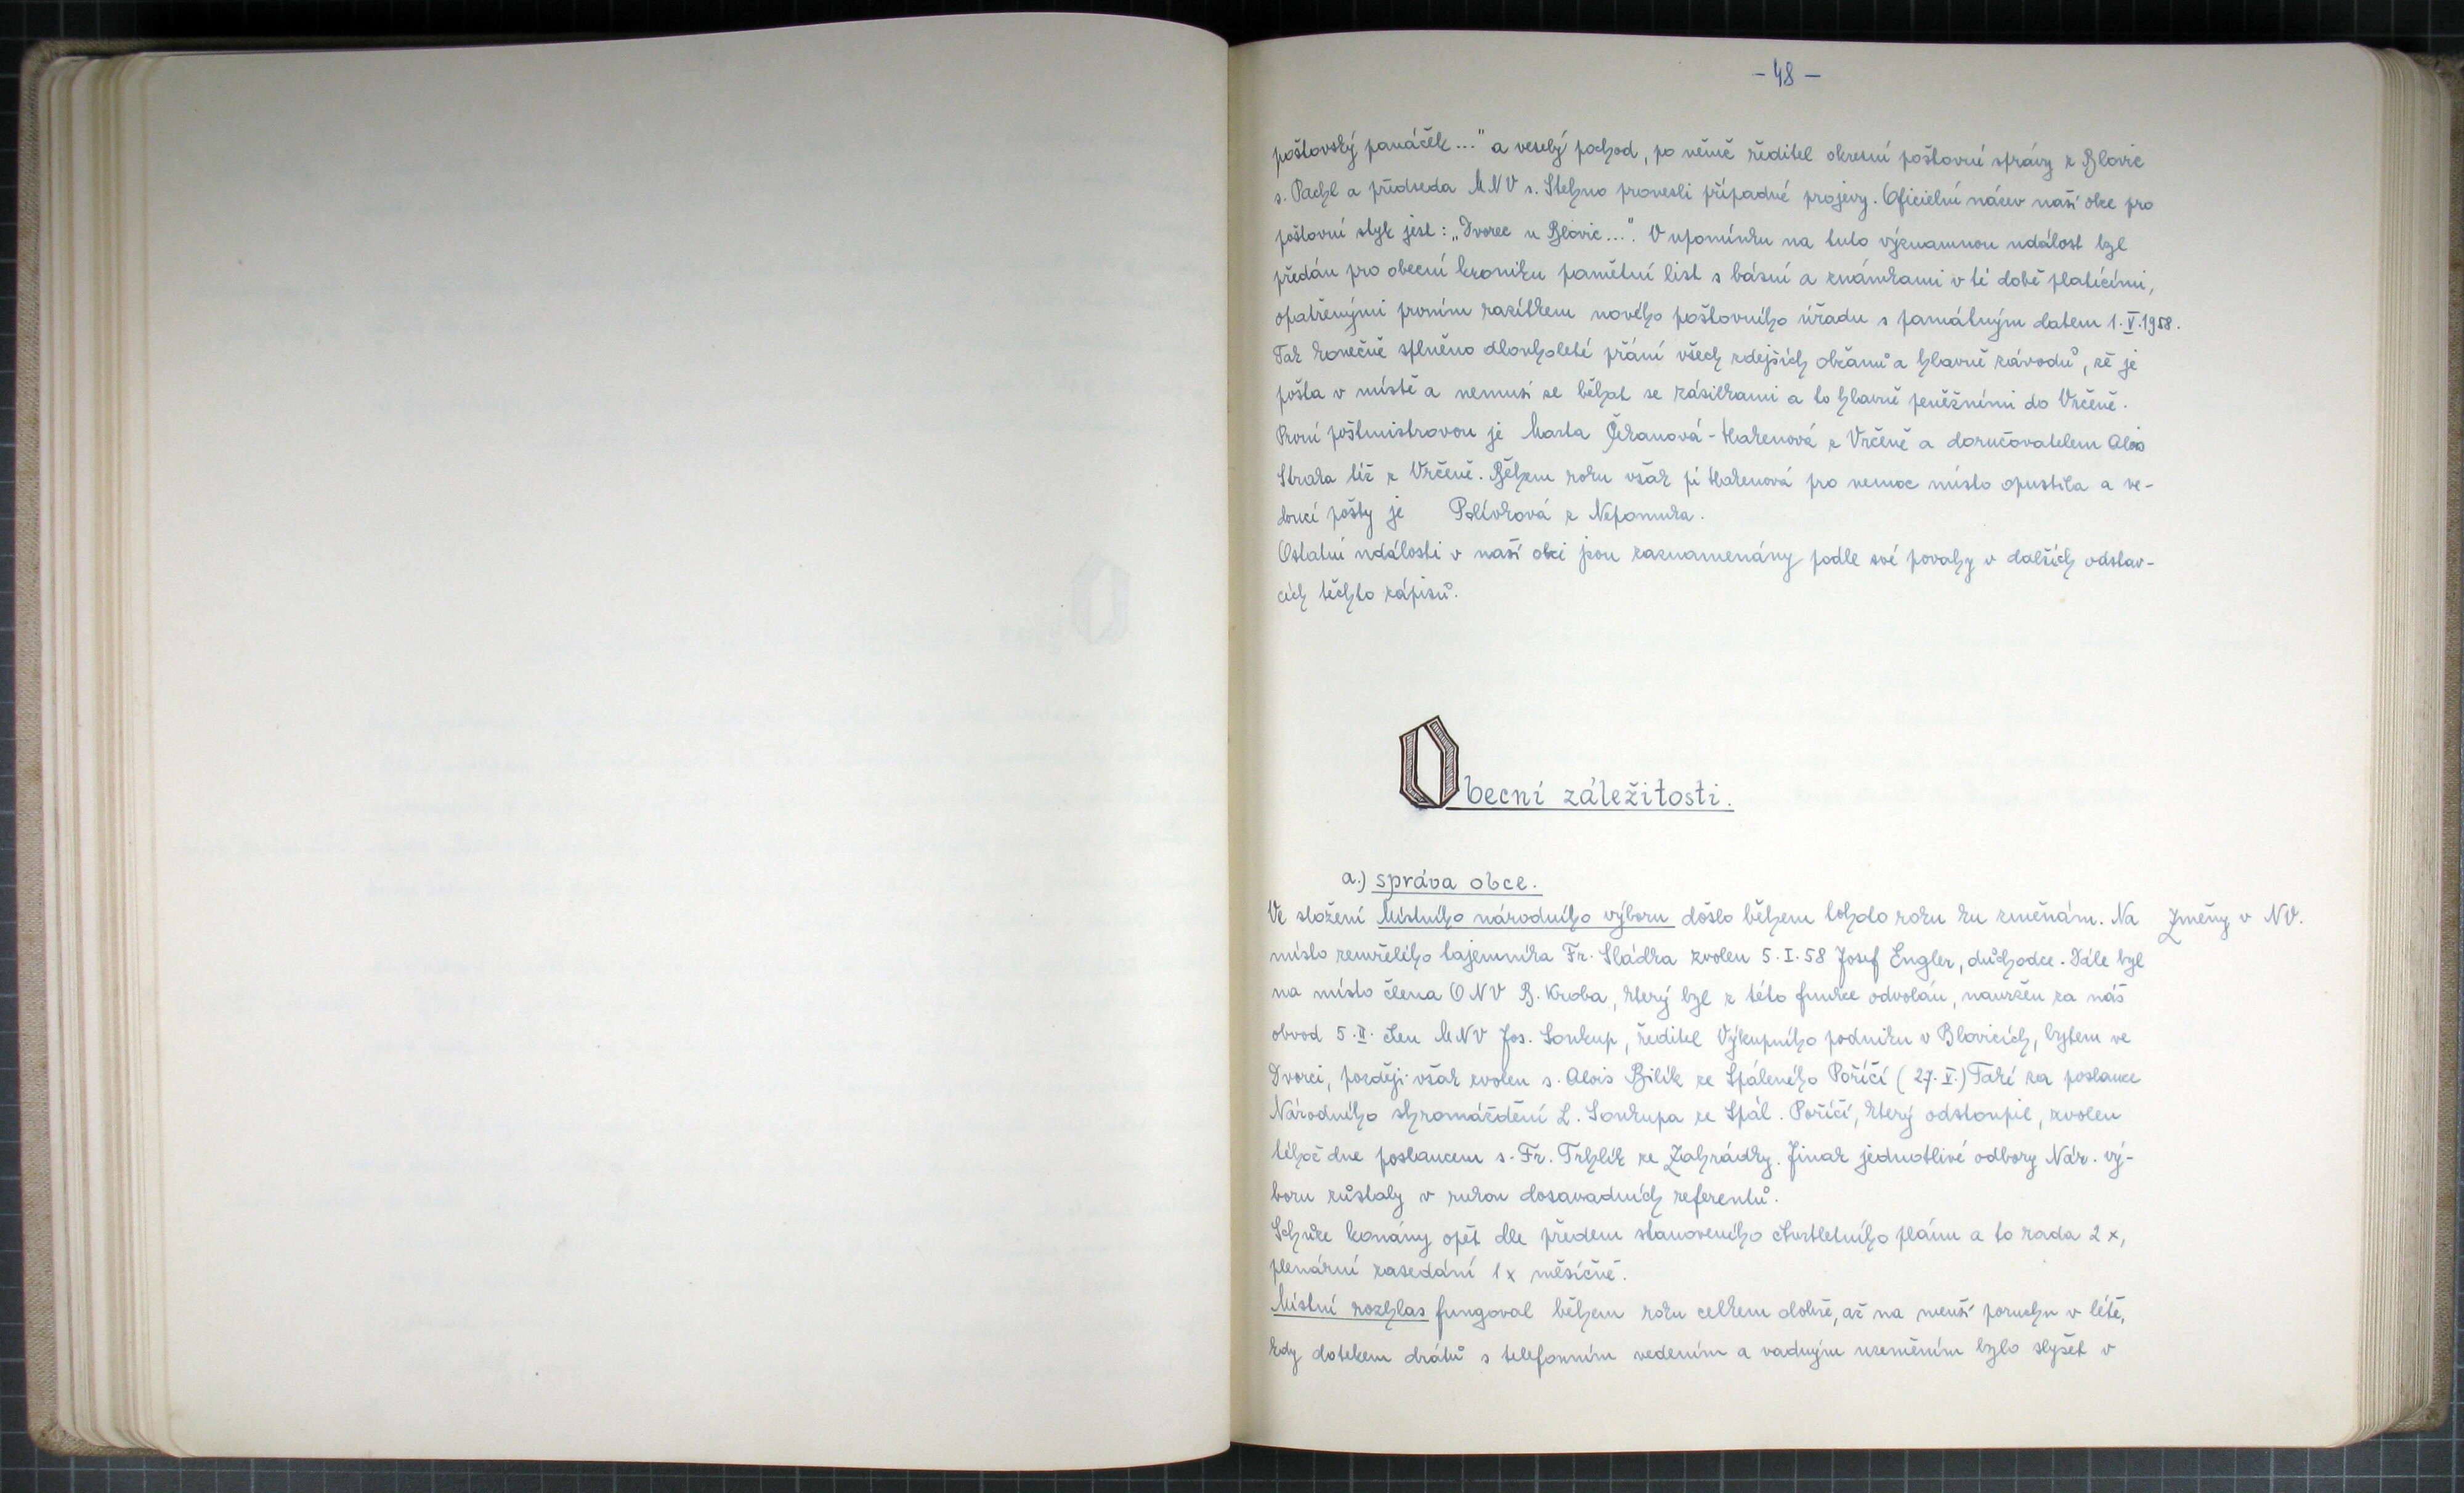 - 48 -
poštovský panáček..." a veselý pochod, po němž ředitel okresní poštovní správy z Blovic
s. Pachl a předseda MNV s. Stehno pronesli případné projevy. Oficielní název naší obce pro
poštovní styk jest: „Dvorec u Blovic...". V upomínku na tuto významnou událost byl
předán pro obecní kroniku pamětní list s básní a známkami v té době platícími,
opatřenými prvním razítkem nového poštovního úřadu s památným datem 1.V.1958.
Tak konečně splněno dlouholeté přání všech zdejších občanů a hlavně závodů, že je
pošta v místě a nemusí se běhat se zásilkami a to hlavně peněžními do Vrčeně.
První poštmistrovou je Marta Hakenová z Vrčeně a doručovatelem Alois
Straka též z Vrčeně. Během roku však pí Hakenová pro nemoc místo opustila a ve-
doucí pošty je Polívková z Nepomuka.
Ostatní události v naší obci jsou zaznamenány podle své povahy v dalších odstav-
cích těchto zápisů.
Obecní záležitosti.
a.) správa obce.
Ve složení Místního národního výboru došlo během tohoto roku ku změnám. Na
Změny v NV.
místo zemřelého tajemníka Fr. Sládka zvolen 5.I.58 Josef Engler, důchodce. Dále byl
na místo člena ONV B. Kroba, který byl z této funkce odvolán, navržen za náš
obvod 5.II. člen MNV Jos. Soukup, ředitel Výkupního podniku v Blovicích, bytem ve
Dvorci, později však zvolen s. Alois Bilík ze Spáleného Poříčí (27.V.) Také za poslance
Národního shromáždění L. Soukupa ze Spál. Poříčí, který odstoupil, zvolen
téhož dne poslancem s. Fr. Trhlík ze Zahrádky. Jinak jednotlivé odbory Nár. vý-
boru zůstaly v rukou dosavadních referentů.
Schůze konány opět dle předem stanoveného čtvrtletního plánu a to rada 2 x,
plenární zasedání 1x měsíčně.
Místní rozhlas fungoval během roku celkem dobře, až na menší poruchu v létě,
kdy dotekem drátů s telefonním vedením a vadným uzeměním bylo slyšet v